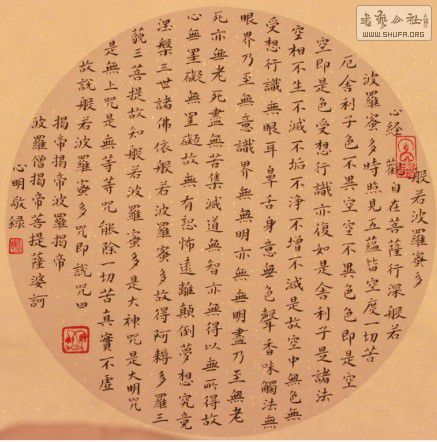 般若波羅蜜多
心經 觀自在菩薩行深般若
波羅蜜多時照見五蘊皆空度一切苦
厄舍利子色不異空空不異色色即是空
空即是色受想行識亦復如是舍利子是諸法
空相不生不滅不垢不淨不增不減是故空中無色無
受想行識無眼耳鼻舌身意無色聲香味觸法無
眼界乃至無意識界無無明亦無無明盡乃至無老
死亦無老死盡無苦集滅道無智亦無得以無所得故
心無罣礙無罣礙故無有恐怖遠離顛倒夢想究竟
涅槃三世諸佛依般若波羅蜜多故得阿耨多羅三
藐三菩提故知般若波羅蜜多是大神咒是大明咒
是無上咒是無等等咒能除一切苦真實不虛
故說般若波羅蜜多咒即說咒曰
揭帝揭帝波羅揭帝
波羅僧揭帝菩提薩婆訶
心明敬錄
WWW.SHUFA.ORG